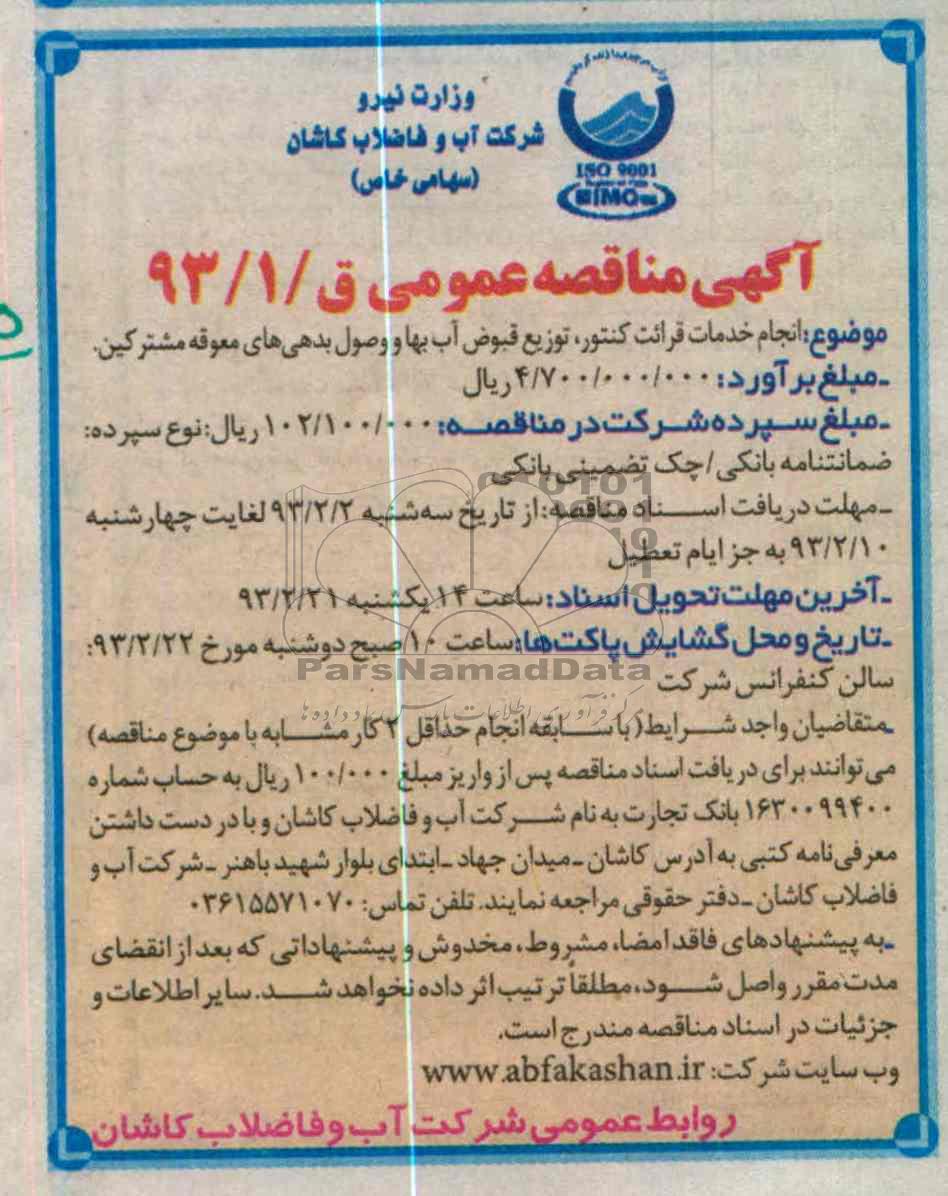 وزارت نیرو
شرکت آب و فاضلاب کاشان
(سهامی خاص)
ISO 9001
IMQ
آگهی مناقصه عمومی ق/۹۳/۱
موضوع: انجام خدمات قرائت کنتور، توزیع قبوض آب بها و وصول بدهی‌های معوقه مشترکین.
ـ مبلغ برآورد: ۴/۷۰۰/۰۰۰/۰۰۰ ریال
ـ مبلغ سپرده شرکت در مناقصه: ۱۰۲/۱۰۰/۰۰۰ ریال: نوع سپرده:
ضمانتنامه بانکی/چک تضمینی بانکی
ـ مهلت دریافت اسناد مناقصه: از تاریخ سه‌شنبه ۹۳/۲/۲ لغایت چهارشنبه
۹۳/۲/۱۰ به جز ایام تعطیل
ـ آخرین مهلت تحویل اسناد: ساعت ۱۴ یکشنبه ۹۳/۲/۲۱
ـ تاریخ و محل گشایش پاکت‌ها: ساعت ۱۰ صبح دوشنبه مورخ ۹۳/۲/۲۲:
سالن کنفرانس شرکت
ParsNamadData
ـ متقاضیان واجد شرایط (با سابقه انجام حداقل ۲ کار مشابه با موضوع مناقصه)
می‌توانند برای دریافت اسناد مناقصه پس از واریز مبلغ ۱۰۰/۰۰۰ ریال به حساب شماره
۱۶۳۰۰۹۹۴۰۰ بانک تجارت به نام شرکت آب و فاضلاب کاشان و با در دست داشتن
معرفی‌نامه کتبی به آدرس کاشان ـ میدان جهاد ـ ابتدای بلوار شهید باهنر ـ شرکت آب و
فاضلاب کاشان ـ دفتر حقوقی مراجعه نمایند. تلفن تماس: ۰۳۶۱۵۵۷۱۰۷۰
ـ به پیشنهادهای فاقد امضا، مشروط، مخدوش و پیشنهاداتی که بعد از انقضای
مدت مقرر واصل شود، مطلقاً ترتیب اثر داده نخواهد شد. سایر اطلاعات و
جزئیات در اسناد مناقصه مندرج است.
وب سایت شرکت: www.abfakashan.ir
روابط عمومی شرکت آب و فاضلاب کاشان